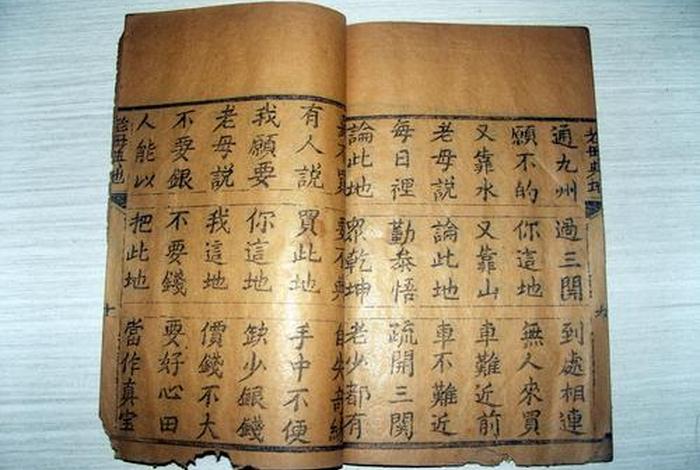 老母典地
通九州 過三關 到處相連
願不的 你這地 無人來買
又靠水 又靠山 車難近前
老母說 論此地 車不難近
每日裡 勤叅悟 疏開三關
論此地 眾乾坤 老少都有
不買 不典 自失奇緣
有人說 買此地 手中不便
我願要 你這地 缺少銀錢
老母說 我這地 價錢不大
不要銀 不要錢 要好心田
人能以 把此地 當作真宝
老母典地 十